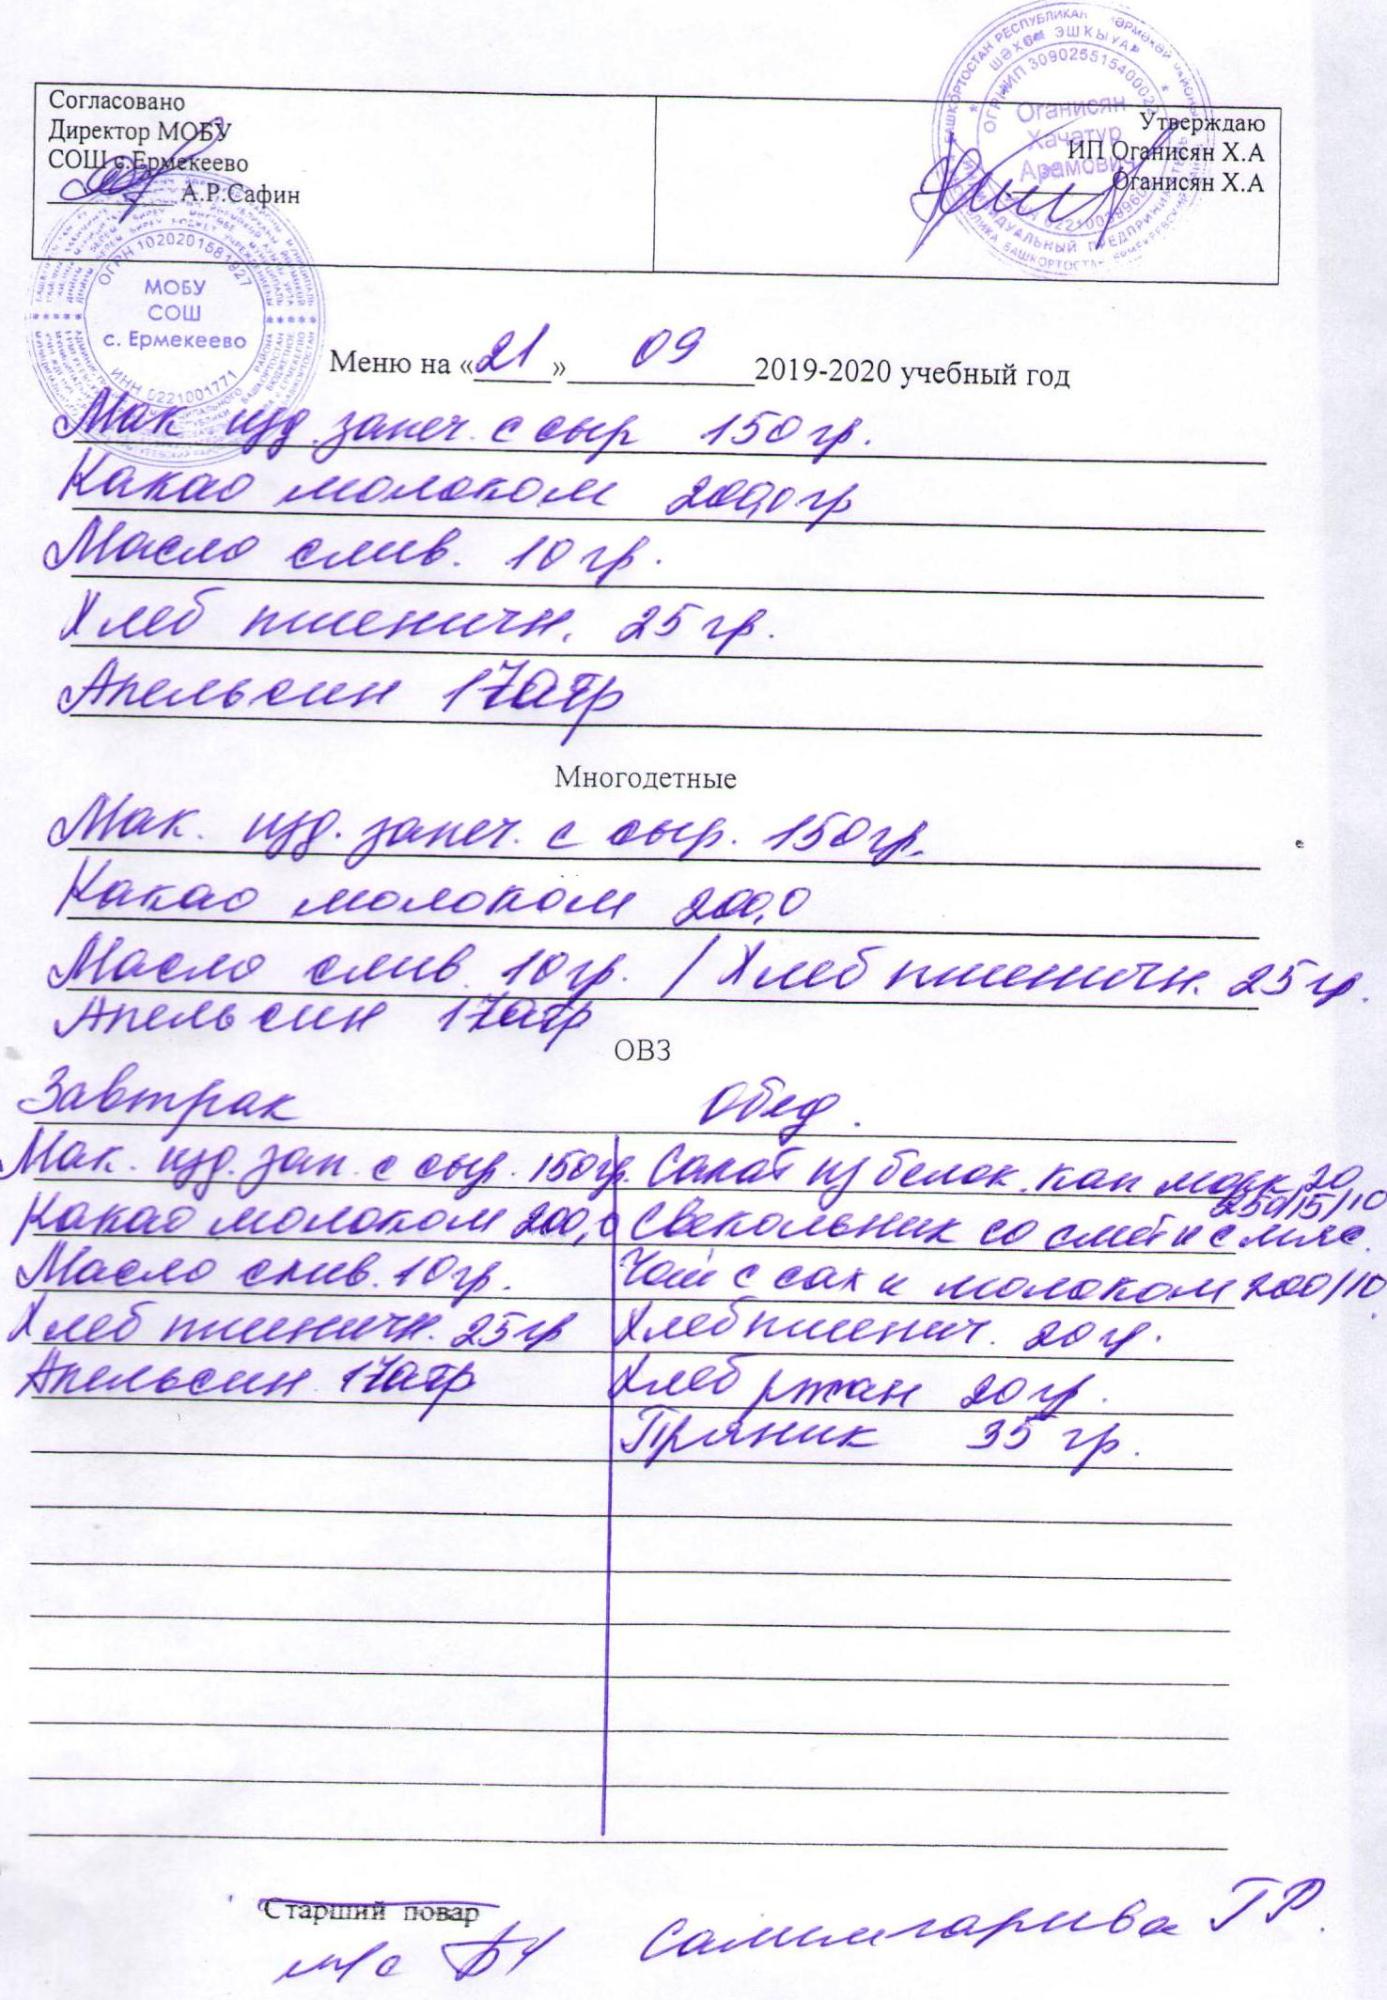 Согласовано
Директор МОБУ
СОШ с.Ермекеево
А.Р.Сафин
Утверждаю
ИП Оганисян Х.А
Оганисян Х.А
Оганисян
Хачатур
Арамович
ОГРН 1020201681927
МОБУ
СОШ
с. Ермекеево
ИНН 0221001771
Меню на «21» 09 2019-2020 учебный год
Мак изд. запеч. с сыр 150 гр.
Какао молоком 200,0 гр
Масло слив. 10 гр.
Хлеб пшеничн. 25 гр.
Апельсин 170гр
Многодетные
Мак. изд. запеч. с сыр. 150 гр.
Какао молоком 200,0
Масло слив. 10 гр. / Хлеб пшеничн. 25 гр.
Апельсин 170гр
ОВЗ
Завтрак Обед.
Мак. изд. зап. с сыр. 150гр. Салат из белок. кап морк 20
250/15/10
Какао молоком 200,0 Свекольник со смет и с мяс.
Масло слив. 10 гр. Чай с сах и молоком 200/10
Хлеб пшеничн. 25 гр Хлеб пшенич. 20 гр.
Апельсин 170гр Хлеб ржан 20 гр.
Пряник 35 гр.
Старший повар
м/с Г Р.